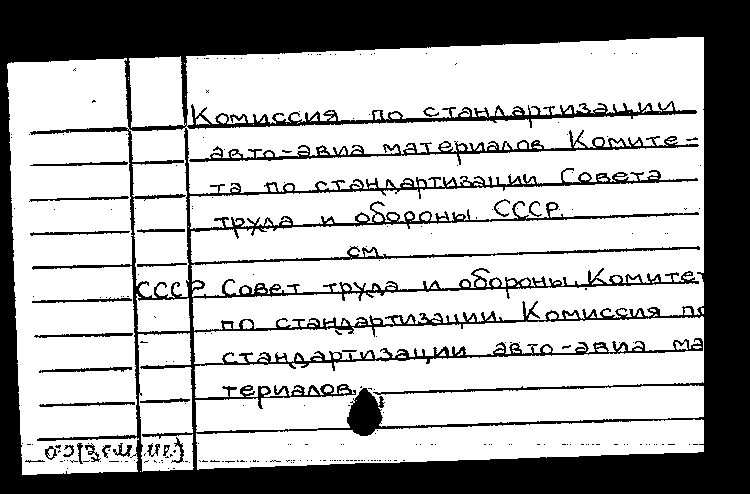 Комиссия по стандартизации
авто-авиа материалов Комите-
та по стандартизации Совета
труда и обороны СССР.
см.
СССР. Совет труда и обороны. Комитет
по стандартизации. Комиссия по
стандартизации авто-авиа ма
териалов.